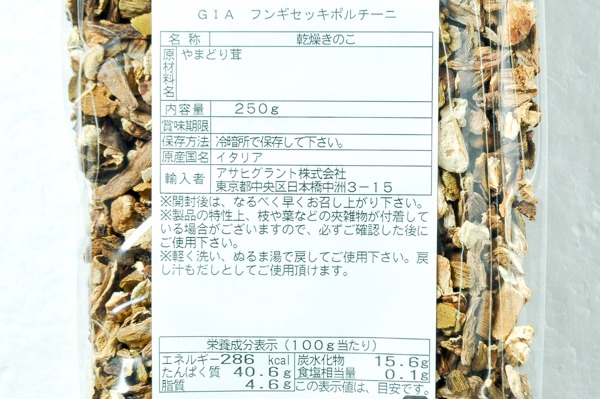 GIA フンギセッキポルチーニ
名称 乾燥きのこ
原材料名 やまどり茸
内容量 250g
賞味期限
保存方法 冷暗所で保存して下さい。
原産国名 イタリア
輸入者 アサヒグラント株式会社
東京都中央区日本橋中洲3－15
※開封後は、なるべく早くお召し上がり下さい。
※製品の特性上、枝や葉などの夾雑物が付着して
いる場合がございますので、必ずご確認した後に
ご使用下さい。
※軽く洗い、ぬるま湯で戻してご使用下さい。戻
し汁もだしとしてご使用頂けます。
栄養成分表示（100g当たり）
エネルギー 286 kcal 炭水化物 15.6g
たんぱく質 40.6g 食塩相当量 0.1g
脂質 4.6g この表示値は、目安です。